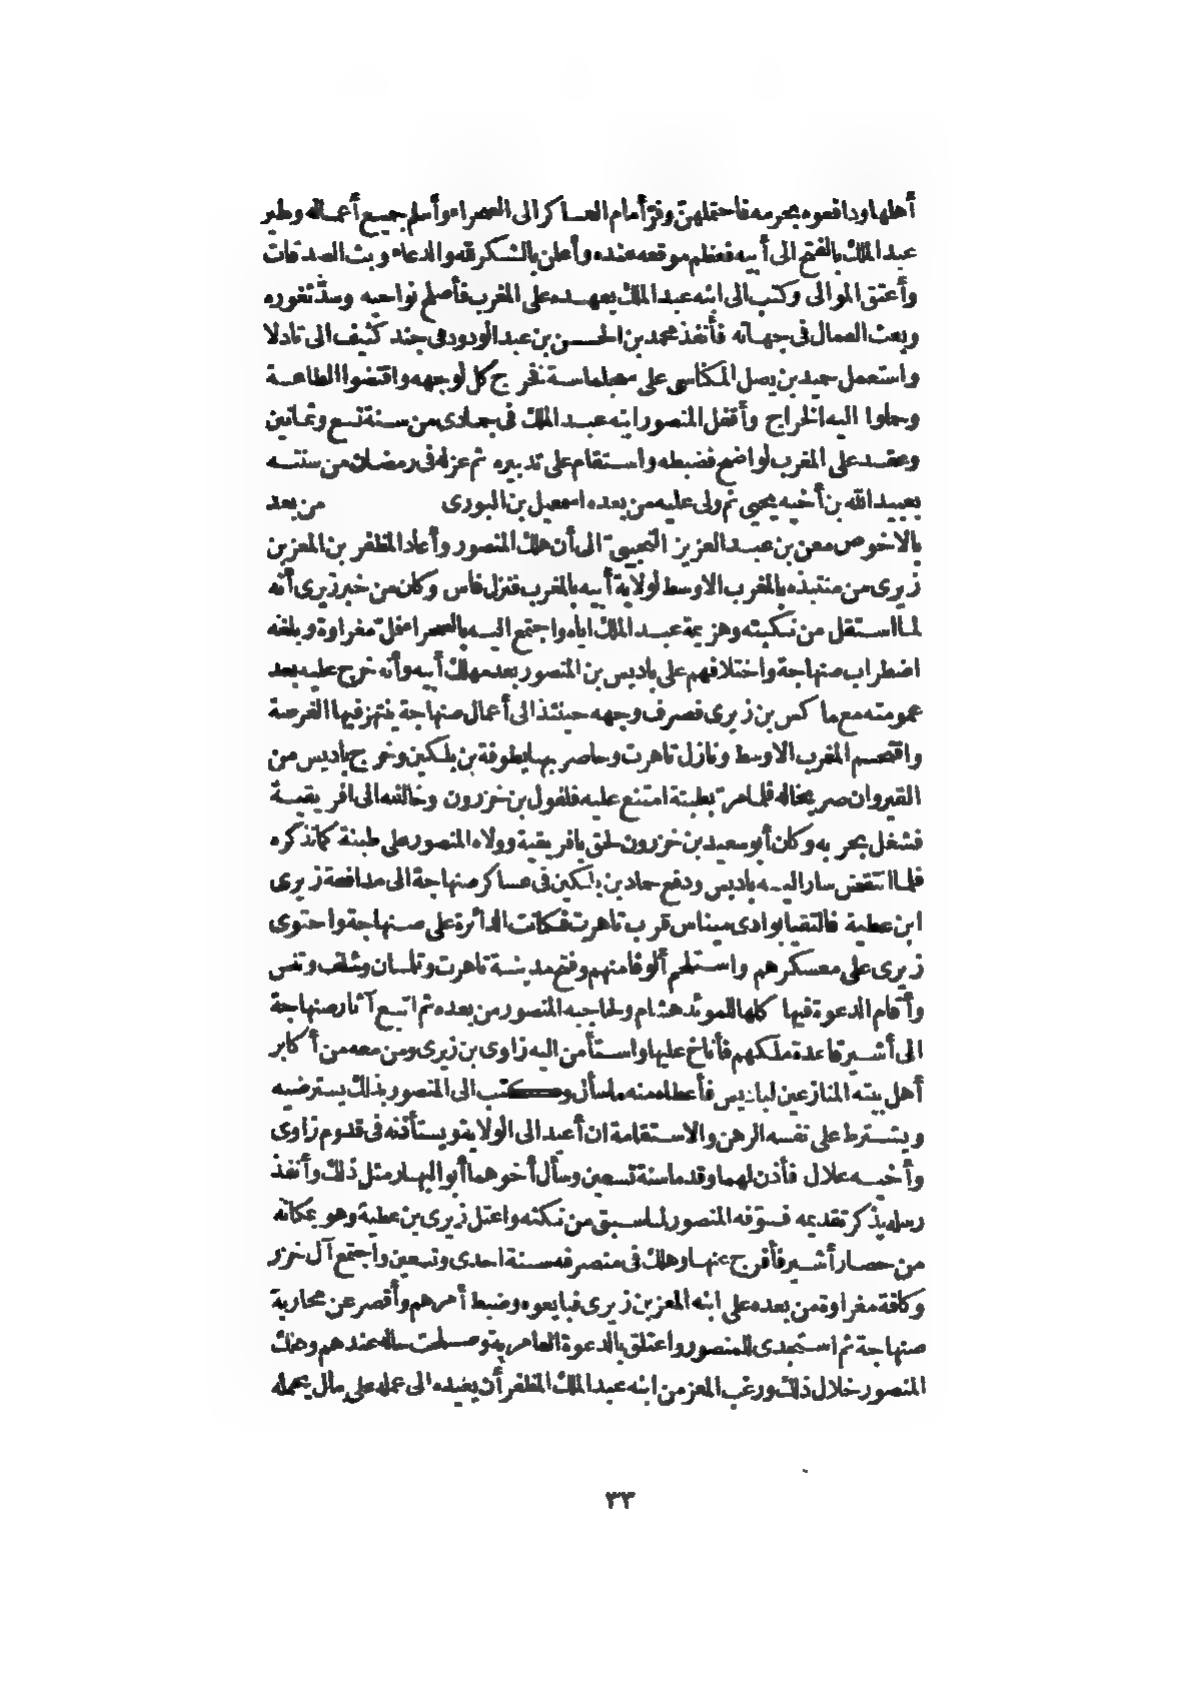 أهلها ودافعوه بحرمه فاحتملهن وفر أمام العساكر الى الصحراء وأسلم جميع أعماله وطير
عبد الملك بالفتح الى أبيه فعظم موقعه عنده وأعلن بالشكر لله والدعاء وبث الصدقات
وأعتق الموالى وكتب الى ابنه عبد الملك بعهده على المغرب فأصلح نواحيه وسدّ ثغوره
وبعث العمال فى جهاته فأنفذ محمد بن الحسن بن عبد الودود فى جند كثيف الى تادلا
واستعمل حميد بن يصل المكناسى على سجلماسة فخرج كل لوجهه واقتضوا الطاعة
وحملوا اليه الخراج وأقفل المنصور ابنه عبد الملك فى جمادى من سنة تسع وثمانين
وعقد على المغرب لواضح فضبطه واستقام على تدبيره ثم عزله فى رمضان من سنته
بعبيد الله بن أخيه يحيى ثم ولى عليه من بعده اسمعيل بن البورى من بعد
بالاخوص معن بن عبد العزيز التجيبىّ الى أن هلك المنصور وأعاد المظفر بن المعز بن
زيرى من منتبذه بالمغرب الاوسط لولاية أبيه بالمغرب فنزل فاس وكان من خبر زيرى أنه
لما استقل من نكبته وهزيمة عبد الملك اياه واجتمع اليه بالصحراء فلّ مغراوة وبلغه
اضطراب صنهاجة واختلافهم على باديس بن المنصور بعد مهلك أبيه وأنه خرج عليه بعد
عمومته مع ماكسن بن زيرى فصرف وجهه حينئذ الى أعمال صنهاجة ينتهز فيها الفرصة
واقتحم المغرب الاوسط ونازل تاهرت وحاصر بها يطوفة بن بلكين وخرج باديس من
القيروان صريخا له فلما مرّ بطبنة امتنع عليه فلفول بن خزرون وخالفه الى افريقية
فشغل بحربه وكان أبو سعيد بن خزرون لحق بافريقية وولاه المنصور على طبنة كما نذكره
فلما انتقض سار اليه باديس ودفع حماد بن بلكين فى عساكر صنهاجة الى مدافعة زيرى
ابن عطية فالتقيا بوادى ميناس قرب تاهرت فكانت الدائرة على صنهاجة واحتوى
زيرى على معسكرهم واستلحم ألوفا منهم وفتح مدينة تاهرت وتلمسان وشلف وتنس
وأقام الدعوة فيها كلها للمؤيد هشام ولحاجبه المنصور من بعده ثم اتبع آثار صنهاجة
الى أشير قاعدة ملكهم فأناخ عليها واستأمن اليه زاوى بن زيرى ومن معه من أكابر
أهل بيته المنازعين لباديس فأعطاه منه ما سأل وكتب الى المنصور بذلك يسترضيه
ويشترط على نفسه الرهن والاستقامة ان أعيد الى الولاية ويستأذنه فى قدوم زاوى
وأخيه علال فأذن لهما وقدما سنة تسعين وسأل أخوهما أبو البهار مثل ذلك وأنفذ
رسله يذكر تقديمه فسوّفه المنصور لما سبق من نكثه واعتل زيرى بن عطية وهو بمكانه
من حصار أشير فأفرج عنها وهلك فى منصرفه سنة احدى وتسعين واجتمع آل خزر
وكافة مغراوة من بعده على ابنه المعز بن زيرى فبايعوه وضبط أمرهم وأقصر عن محاربة
صنهاجة ثم استجدى للمنصور واعتلق بالدعوة العامرية وصلحت حاله عندهم وهلك
المنصور خلال ذلك ورغب المعز من ابنه عبد الملك المظفر أن يعيده الى عمله على مال يحمله
٣٣